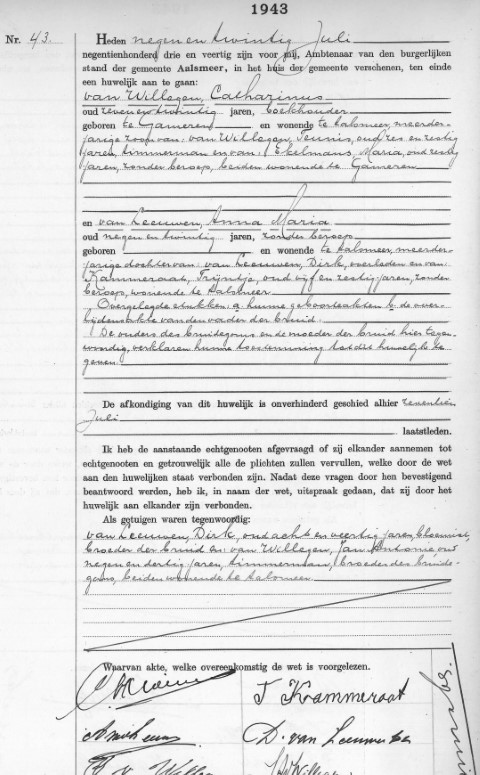 1943
Nr. 43.
Heden negen en twintig Juli
negentienhonderd drie en veertig zijn voor mij, Ambtenaar van den burgerlijken
stand der gemeente Aalsmeer, in het huis der gemeente verschenen, ten einde
een huwelijk aan te gaan:
van Willegen, Catharinus
oud zeven en twintig jaren, boekhouder
geboren te Gameren en wonende te Aalsmeer, meerder-
jarige zoon van: van Willegen, Teunis, oud zes en zestig
jaren, timmerman en van: Ekelmans, Maria, oud zestig
jaren, zonder beroep, beiden wonende te Gameren
en van Leeuwen, Anna Maria
oud negen en twintig jaren, zonder beroep
geboren en wonende te Aalsmeer, meerder-
jarige dochter van: van Leeuwen, Dirk, overleden en van:
Kammeraat, Trijntje, oud vijf en zestig jaren, zonder
beroep, wonende te Aalsmeer.
Overgelegde stukken: a. hunne geboorteakten b. de over-
lijdensakte van den vader der bruid.
De ouders des bruidegoms en de moeder der bruid hier tegen-
woordig, verklaren hunne toestemming tot dit huwelijk te
geven.
De afkondiging van dit huwelijk is onverhinderd geschied alhier zeventien
Juli
laatstleden.
Ik heb de aanstaande echtgenooten afgevraagd of zij elkander aannemen tot
echtgenooten en getrouwelijk alle de plichten zullen vervullen, welke door de wet
aan den huwelijken staat verbonden zijn. Nadat deze vragen door hen bevestigend
beantwoord werden, heb ik, in naam der wet, uitspraak gedaan, dat zij door het
huwelijk aan elkander zijn verbonden.
Als getuigen waren tegenwoordig:
van Leeuwen, Dirk, oud acht en veertig jaren, bloemist,
broeder der bruid en: van Willegen, Jan Antonie oud
negen en dertig jaren, timmerman, broeder des bruide-
goms, beiden wonende te Aalsmeer.
Waarvan akte, welke overeenkomstig de wet is voorgelezen.
T Kammeraat
D. van Leeuwen